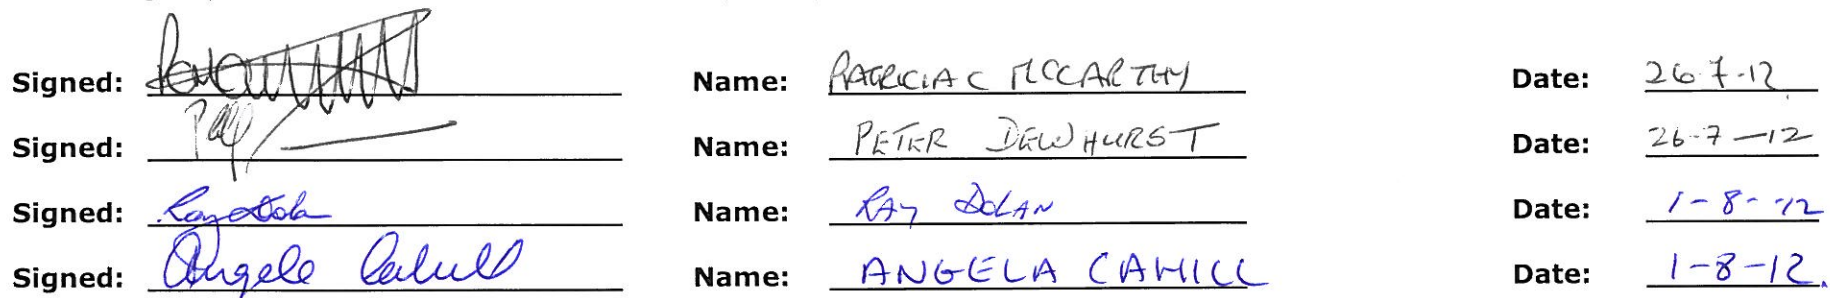 Signed: Name: PATRICIA C MCCARTHY Date: 26.7.12
Signed: Name: PETER DEWHURST Date: 26-7-12
Signed: Ray Dolan Name: RAY DOLAN Date: 1-8-12
Signed: Angela Cahill Name: ANGELA CAHILL Date: 1-8-12.